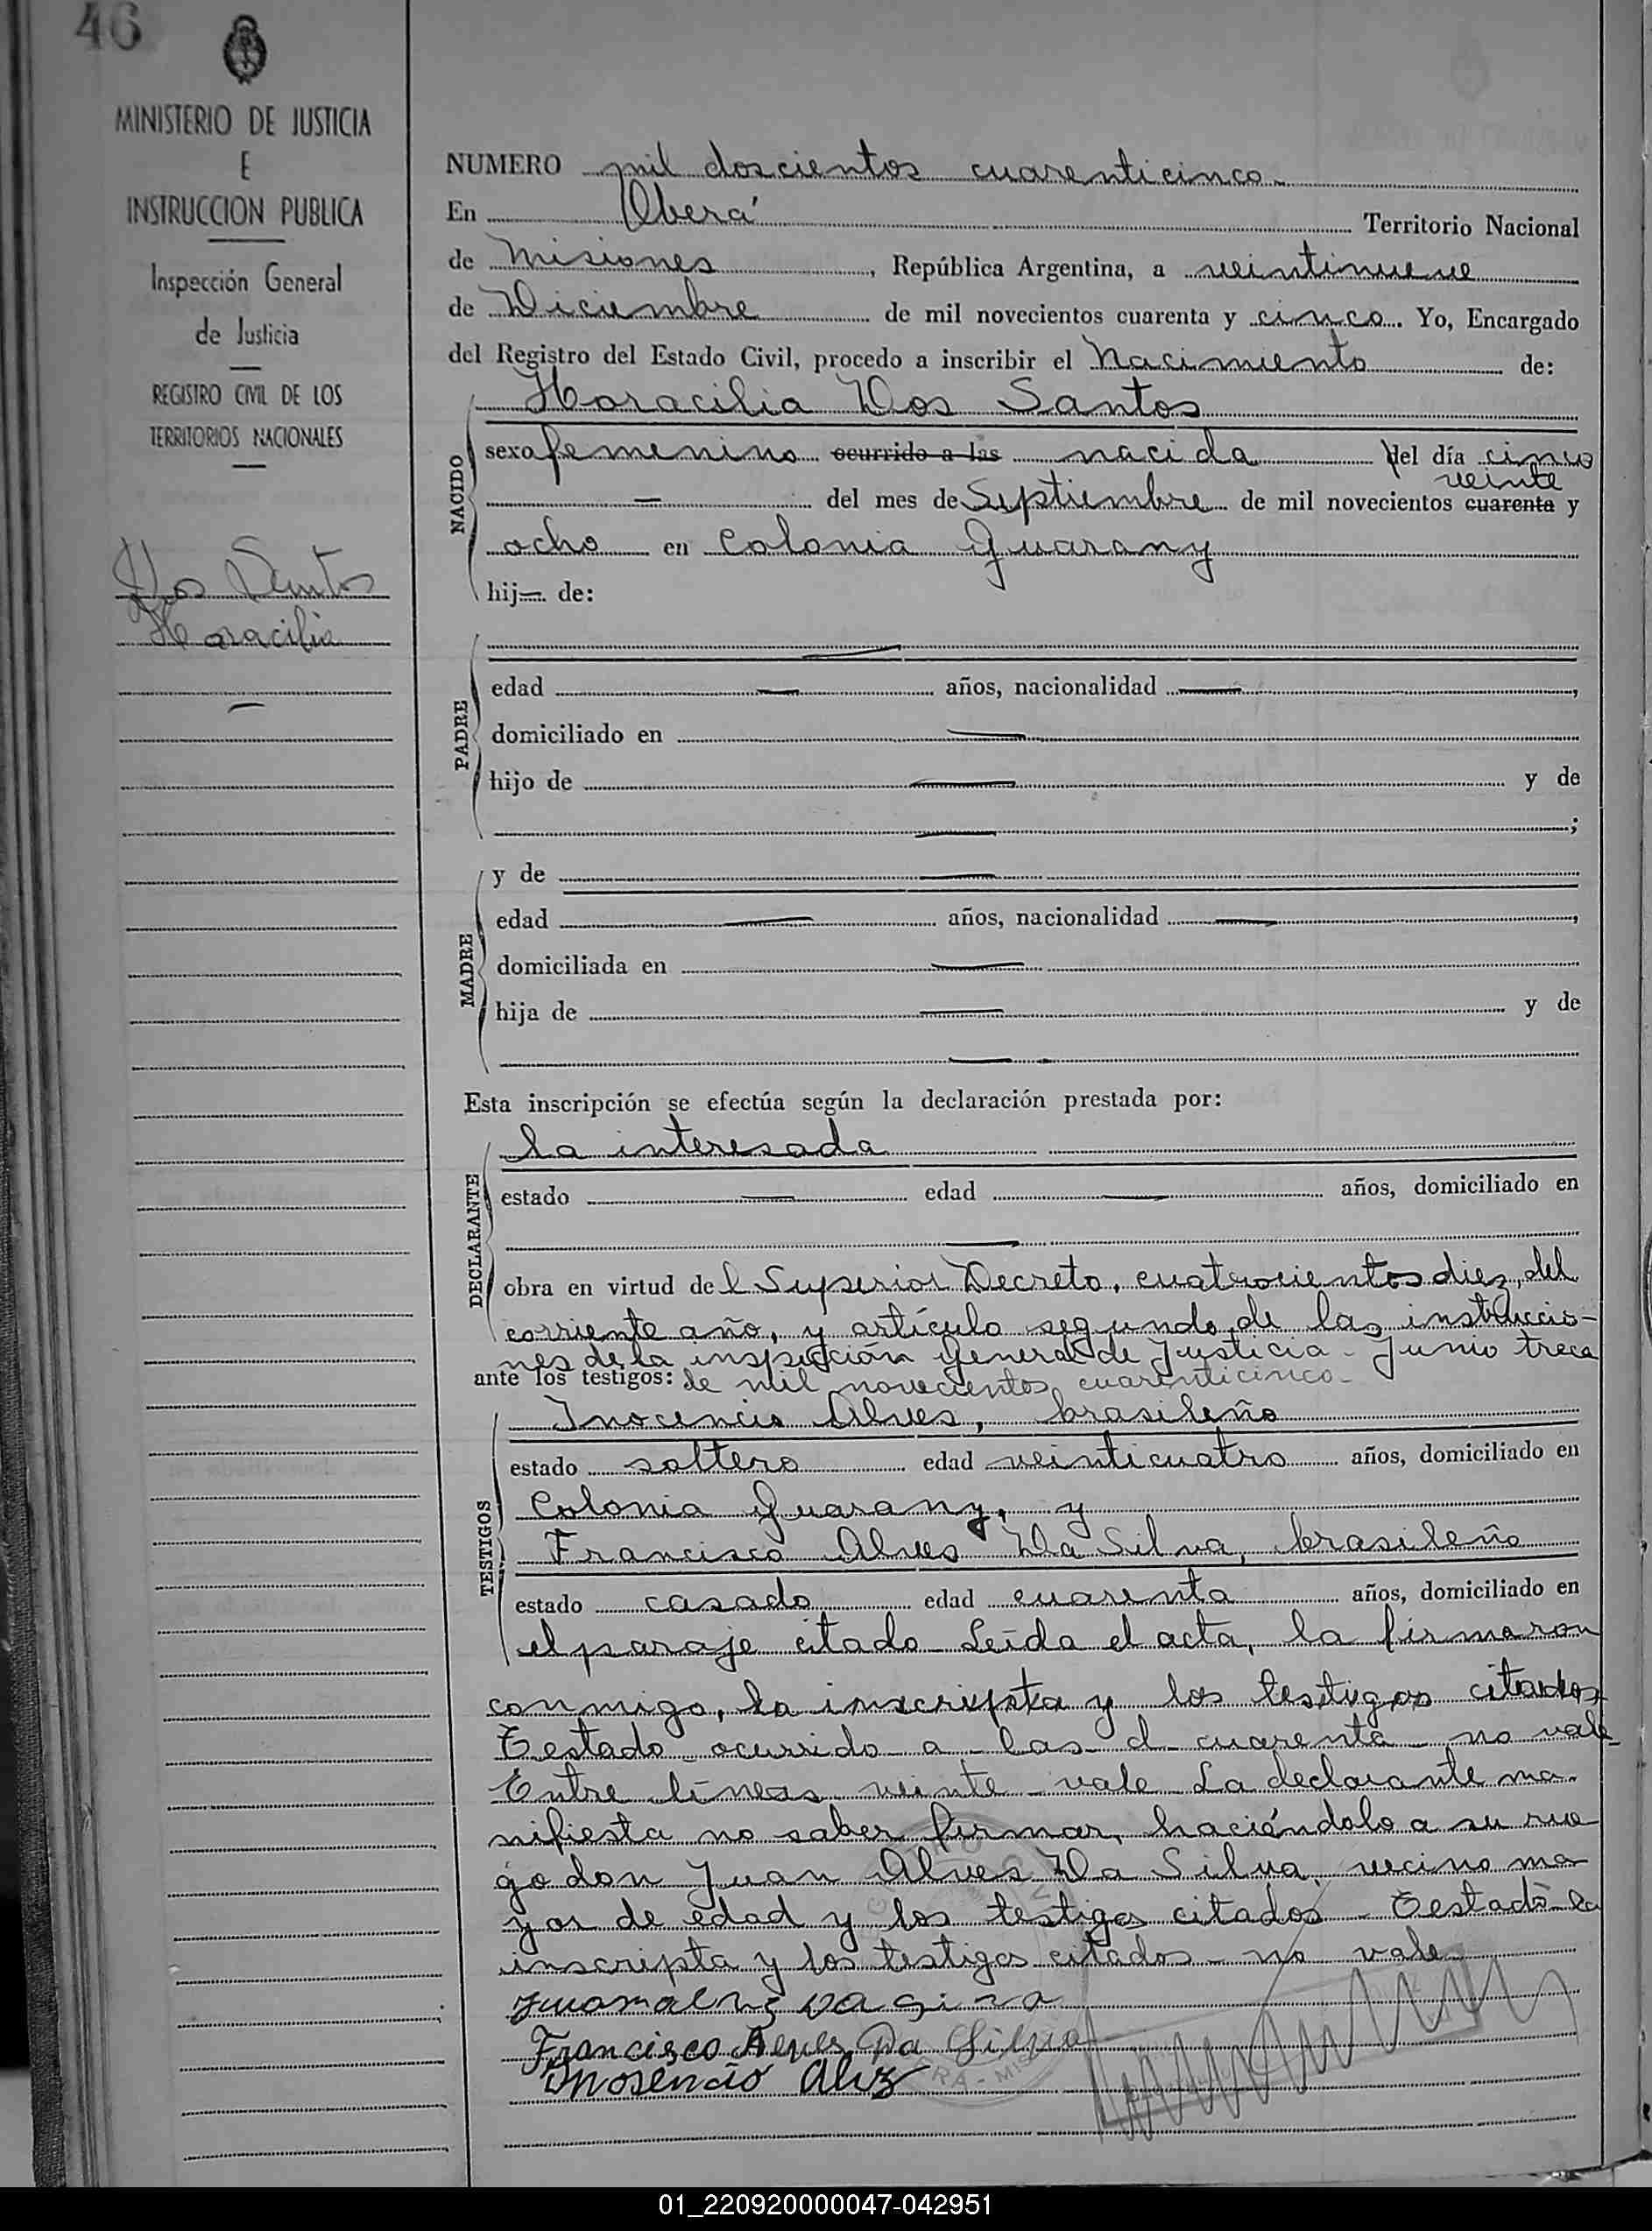 46
MINISTERIO DE JUSTICIA
E
INSTRUCCION PUBLICA
Inspección General
de Justicia
REGISTRO CIVIL DE LOS
TERRITORIOS NACIONALES
Dos Santos
Horacilia
NUMERO mil doscientos cuarenticinco
En Oberá Territorio Nacional
de Misiones, República Argentina, a veintinueve
de Diciembre de mil novecientos cuarenta y cinco. Yo, Encargado
del Registro del Estado Civil, procedo a inscribir el Nacimiento de:
Horacilia Dos Santos
NACIDO
sexo femenino ocurrido a las nacida del día cinco
veinte
— del mes de Septiembre de mil novecientos cuarenta y
ocho en Colonia Guarany
hij— de:
PADRE
—
edad — años, nacionalidad —,
domiciliado en —
hijo de — y de
—;
MADRE
y de —
edad — años, nacionalidad —,
domiciliada en —
hija de — y de
—
Esta inscripción se efectúa según la declaración prestada por:
DECLARANTE
la interesada
estado — edad — años, domiciliado en
—
obra en virtud del Superior Decreto, cuatrocientos diez, del
corriente año, y artículo segundo de las instruccio-
nes de la inspección General de Justicia - Junio trece
ante los testigos: de mil novecientos cuarenticinco-
TESTIGOS
Inocencio Alves, brasileño
estado soltero edad veinticuatro años, domiciliado en
Colonia Guarany, y
Francisco Alves Da Silva, brasileño
estado casado edad cuarenta años, domiciliado en
el paraje citado - Leída el acta, la firmaron
conmigo, la inscripta y los testigos citados-
Testado - ocurrido a las - d - cuarenta - no vale-
Entre líneas - veinte - vale - La declarante ma-
nifiesta no saber firmar, haciéndolo a su rue
go don Juan Alves Da Silva, vecino ma
yor de edad y los testigos citados - Testado - la
inscripta y los testigos citados - no vale-
Francisco Alves Da Silva
Inosencio Alvz
01_220920000047-042951